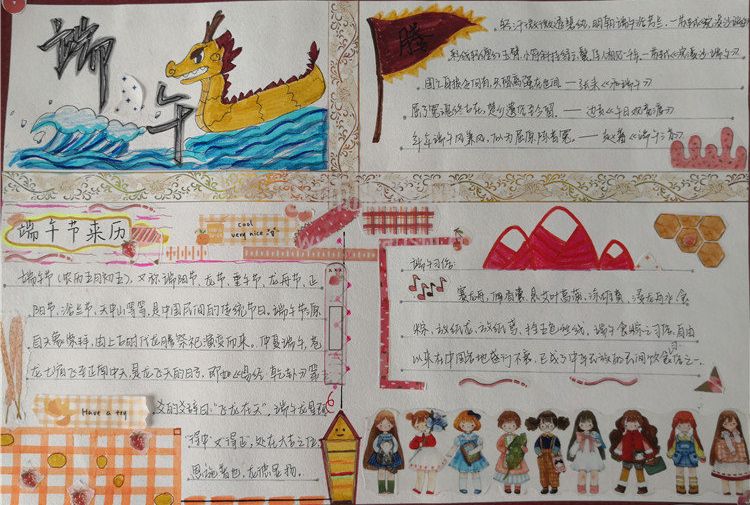 端午
腾
轻汗微微透碧纨，明朝端午浴芳兰。
彩线轻缠红玉臂，小符斜挂绿云鬟，佳人相见一千年。
国亡身殒今何有，只留离骚在世间 —— 张耒《和端午》
屈子冤魂终古在，楚乡遗俗至今留。—— 边贡《午日观竞渡》
年年端午风兼雨，似为屈原陈昔冤。—— 赵蕃《端午三首》
端午节来历
cool
very nice
端午节（农历五月初五），又称端阳节、龙节、重午节、龙舟节、正
阳节、浴兰节、天中节等等，是中国民间的传统节日。端午节源
自天象崇拜，由上古时代龙图腾祭祀演变而来。仲夏端午，苍
龙七宿飞至正南中天，是龙飞天的日子，即如《易经·乾卦》第
Have a try
爻的爻辞曰："飞龙在天"。端午龙星既
"得中"又得正，处在大吉之位，
恩施普也，龙德显扬。
端午习俗
赛龙舟，佩香囊，悬艾叶菖蒲，
粽，放纸龙，放纸鸢，拴五色丝线，端午食粽之习俗，自古
以来在中国各地盛行不衰，已成了中华民族的民间饮食习俗之一。